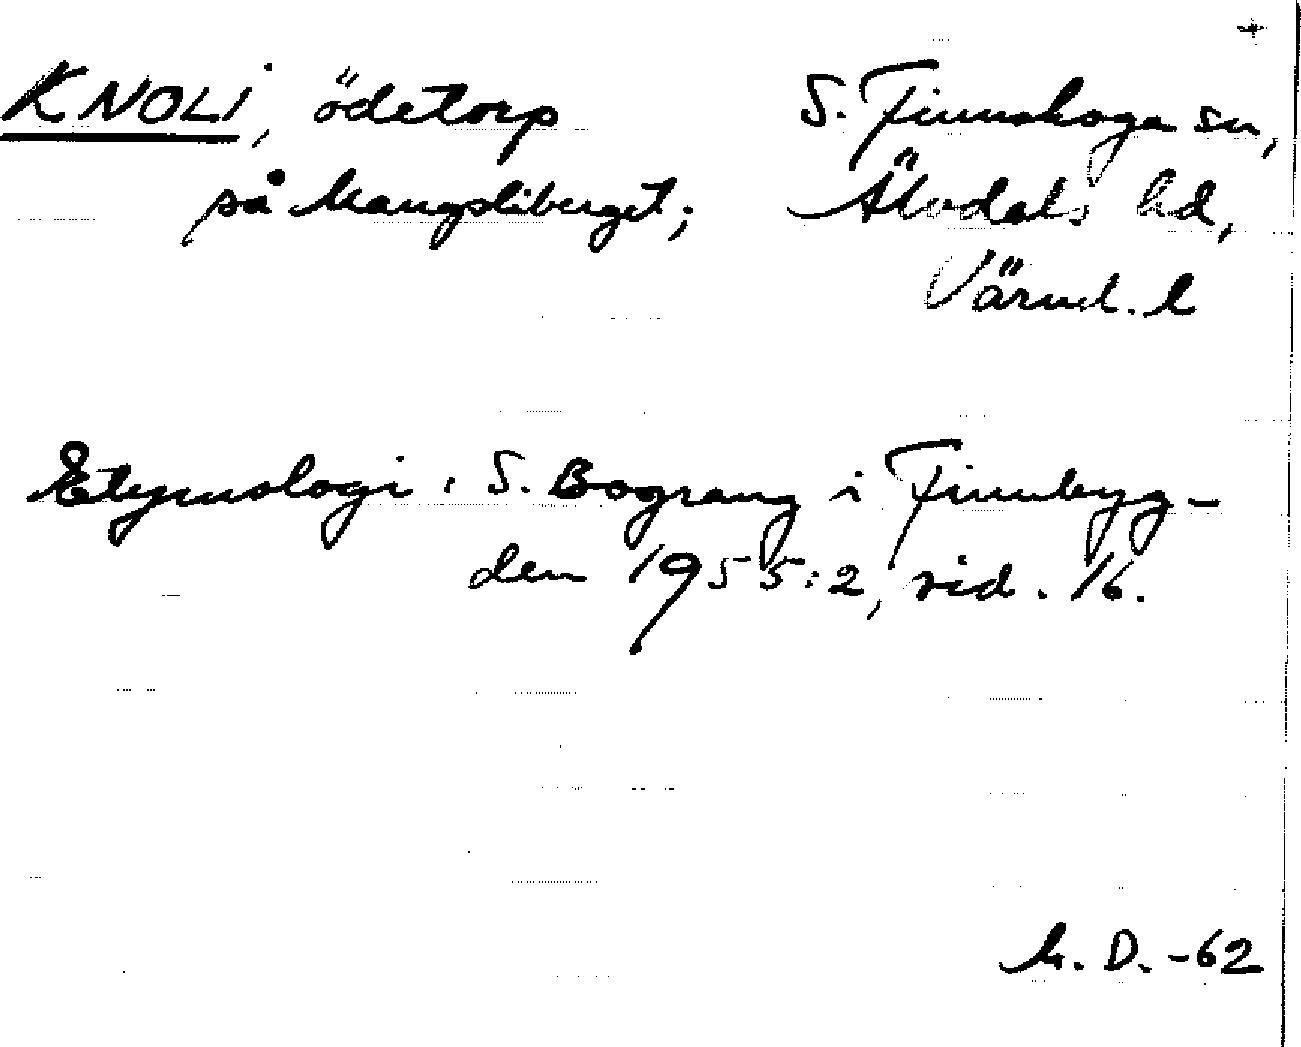 +
KNOLI, ödetorp
på Mangsliberget;
S. Finnskoga sn,
Älvdals hd,
Värml. l
Etymologi: S. Bograng i Finnbyg-
den 1955:2, sid. 16.
M. D. -62